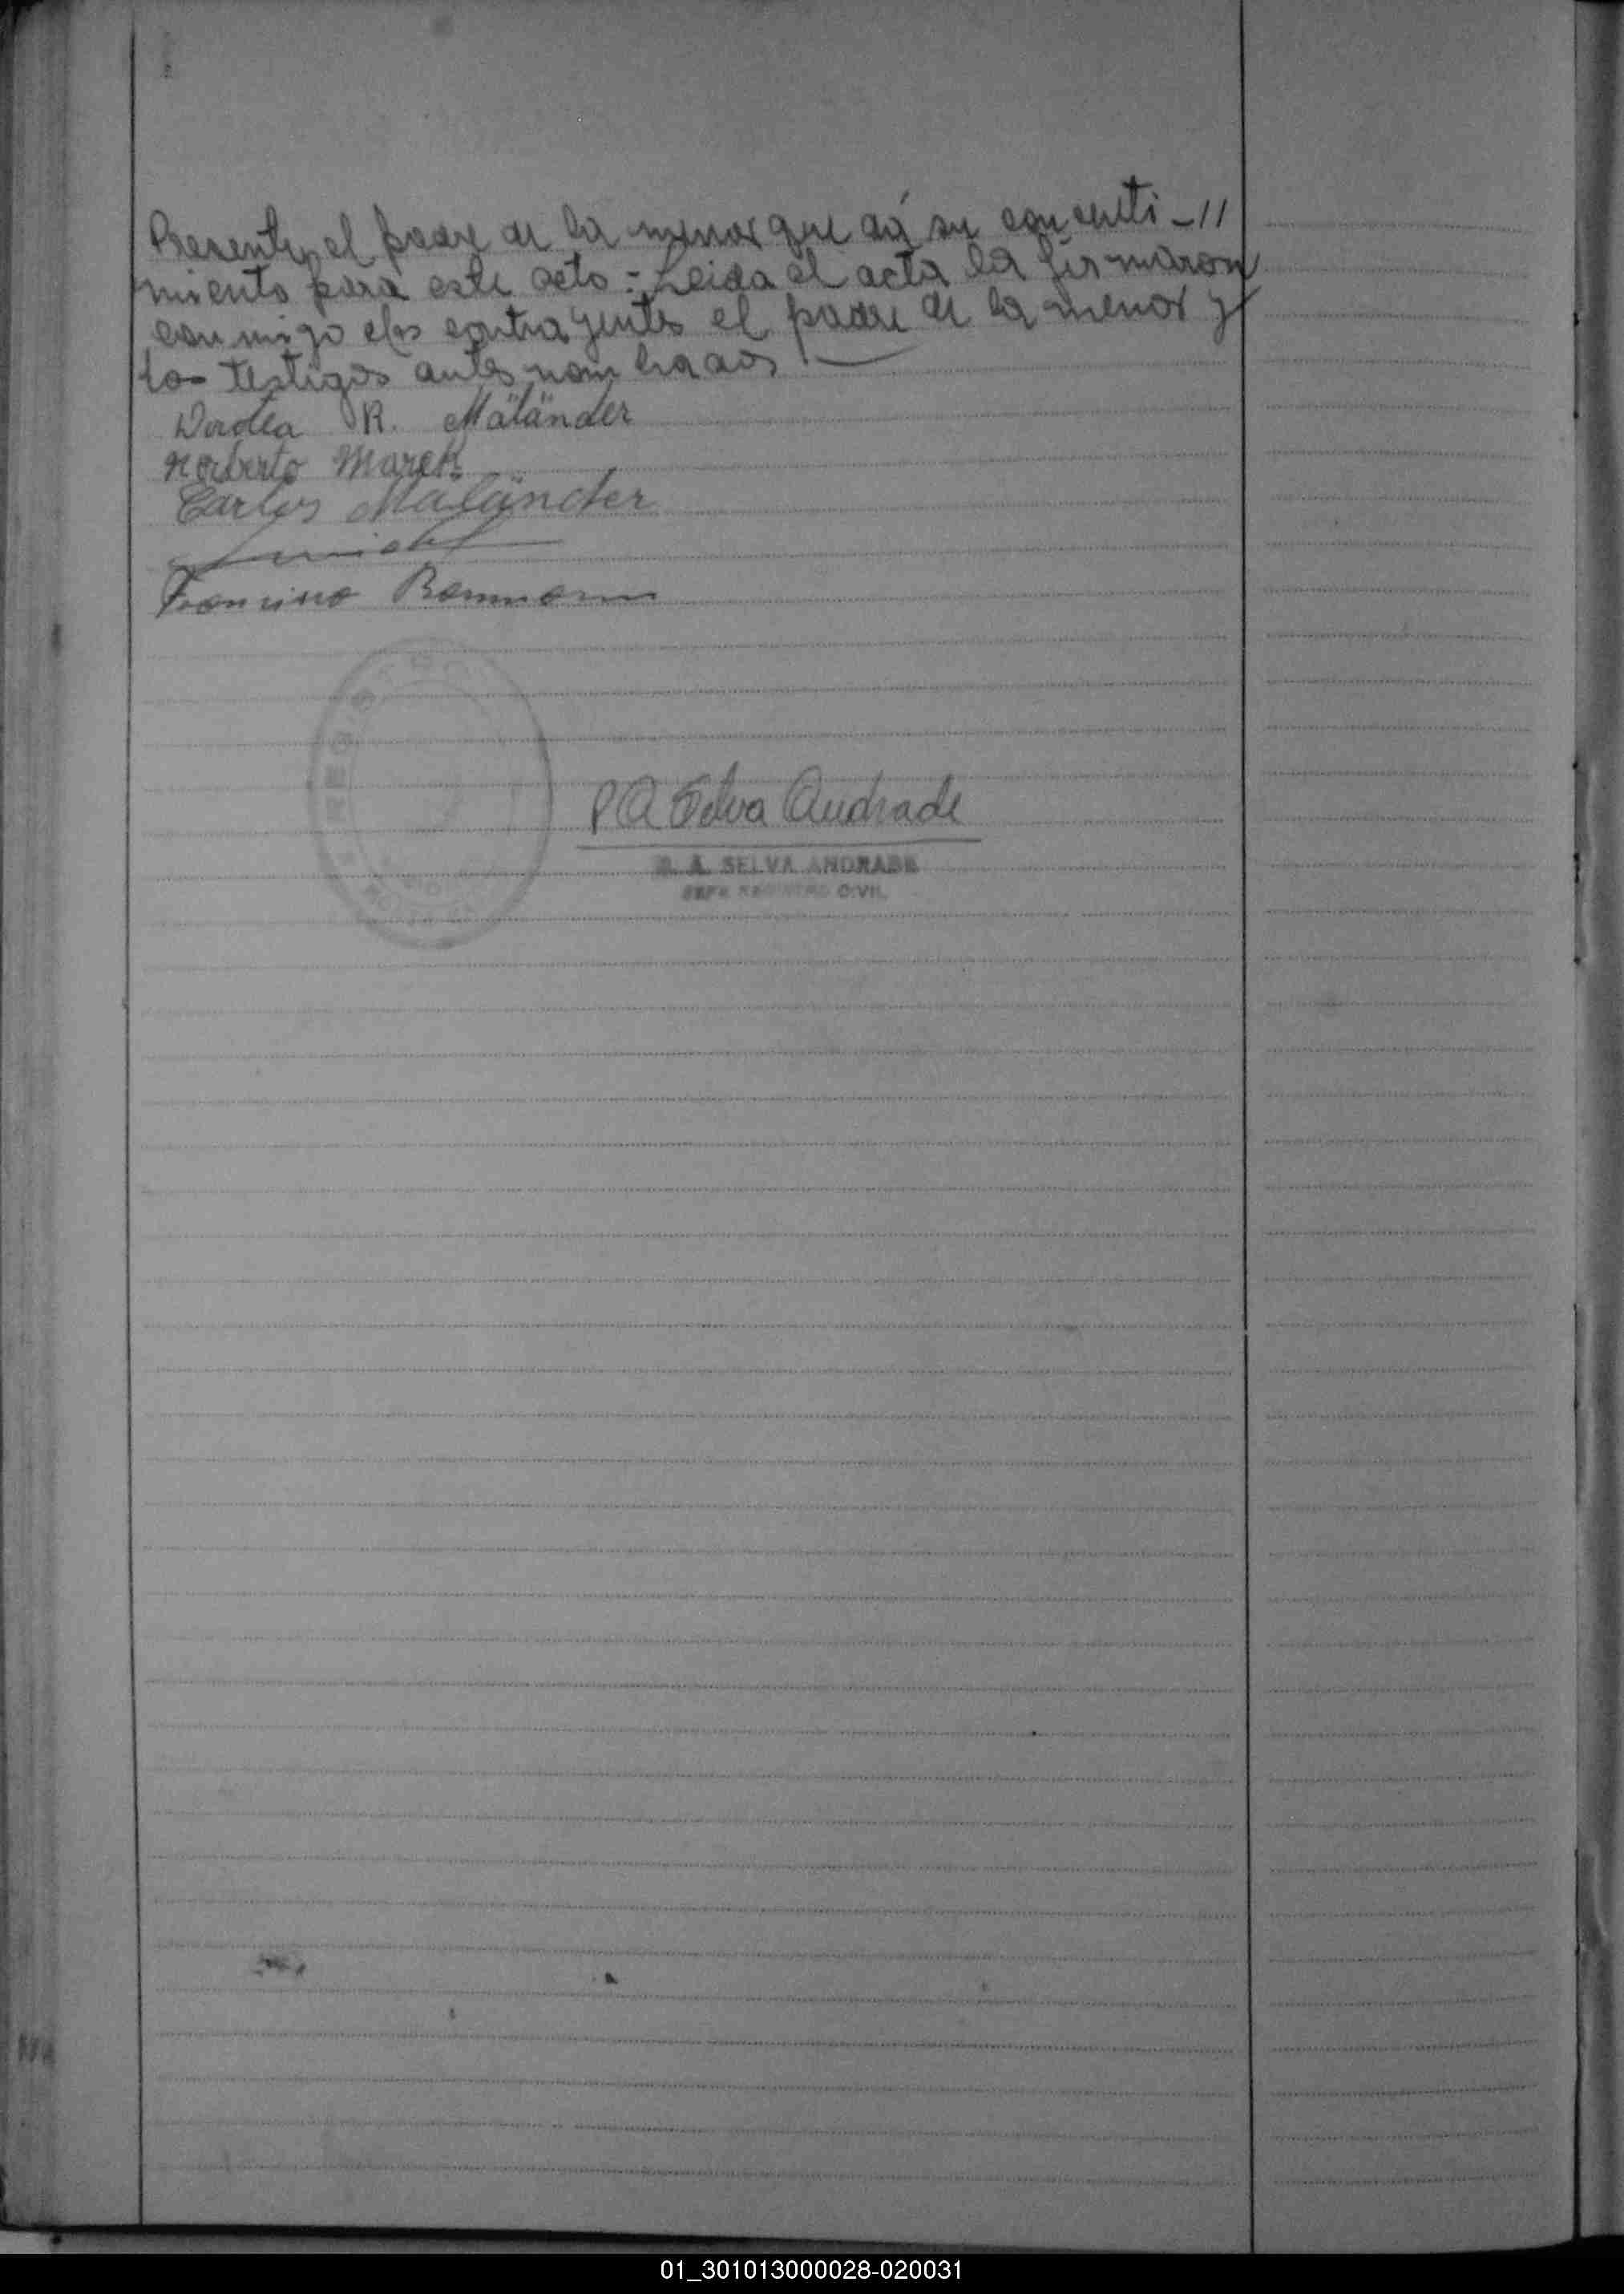 Presente el padre de la menor que dá su consenti-//
miento para este acto:- Leida el acta la firmaron
conmigo los contrayentes el padre de la menor y
los testigos antes nombrados.—
Dordea R. Maländer
Norberto Marek
Carlos Maländer
Francisco
REGIS
P A Selva Andrade
P. A. SELVA ANDRADE
JEFE REGISTRO CIVIL
01_301013000028-020031